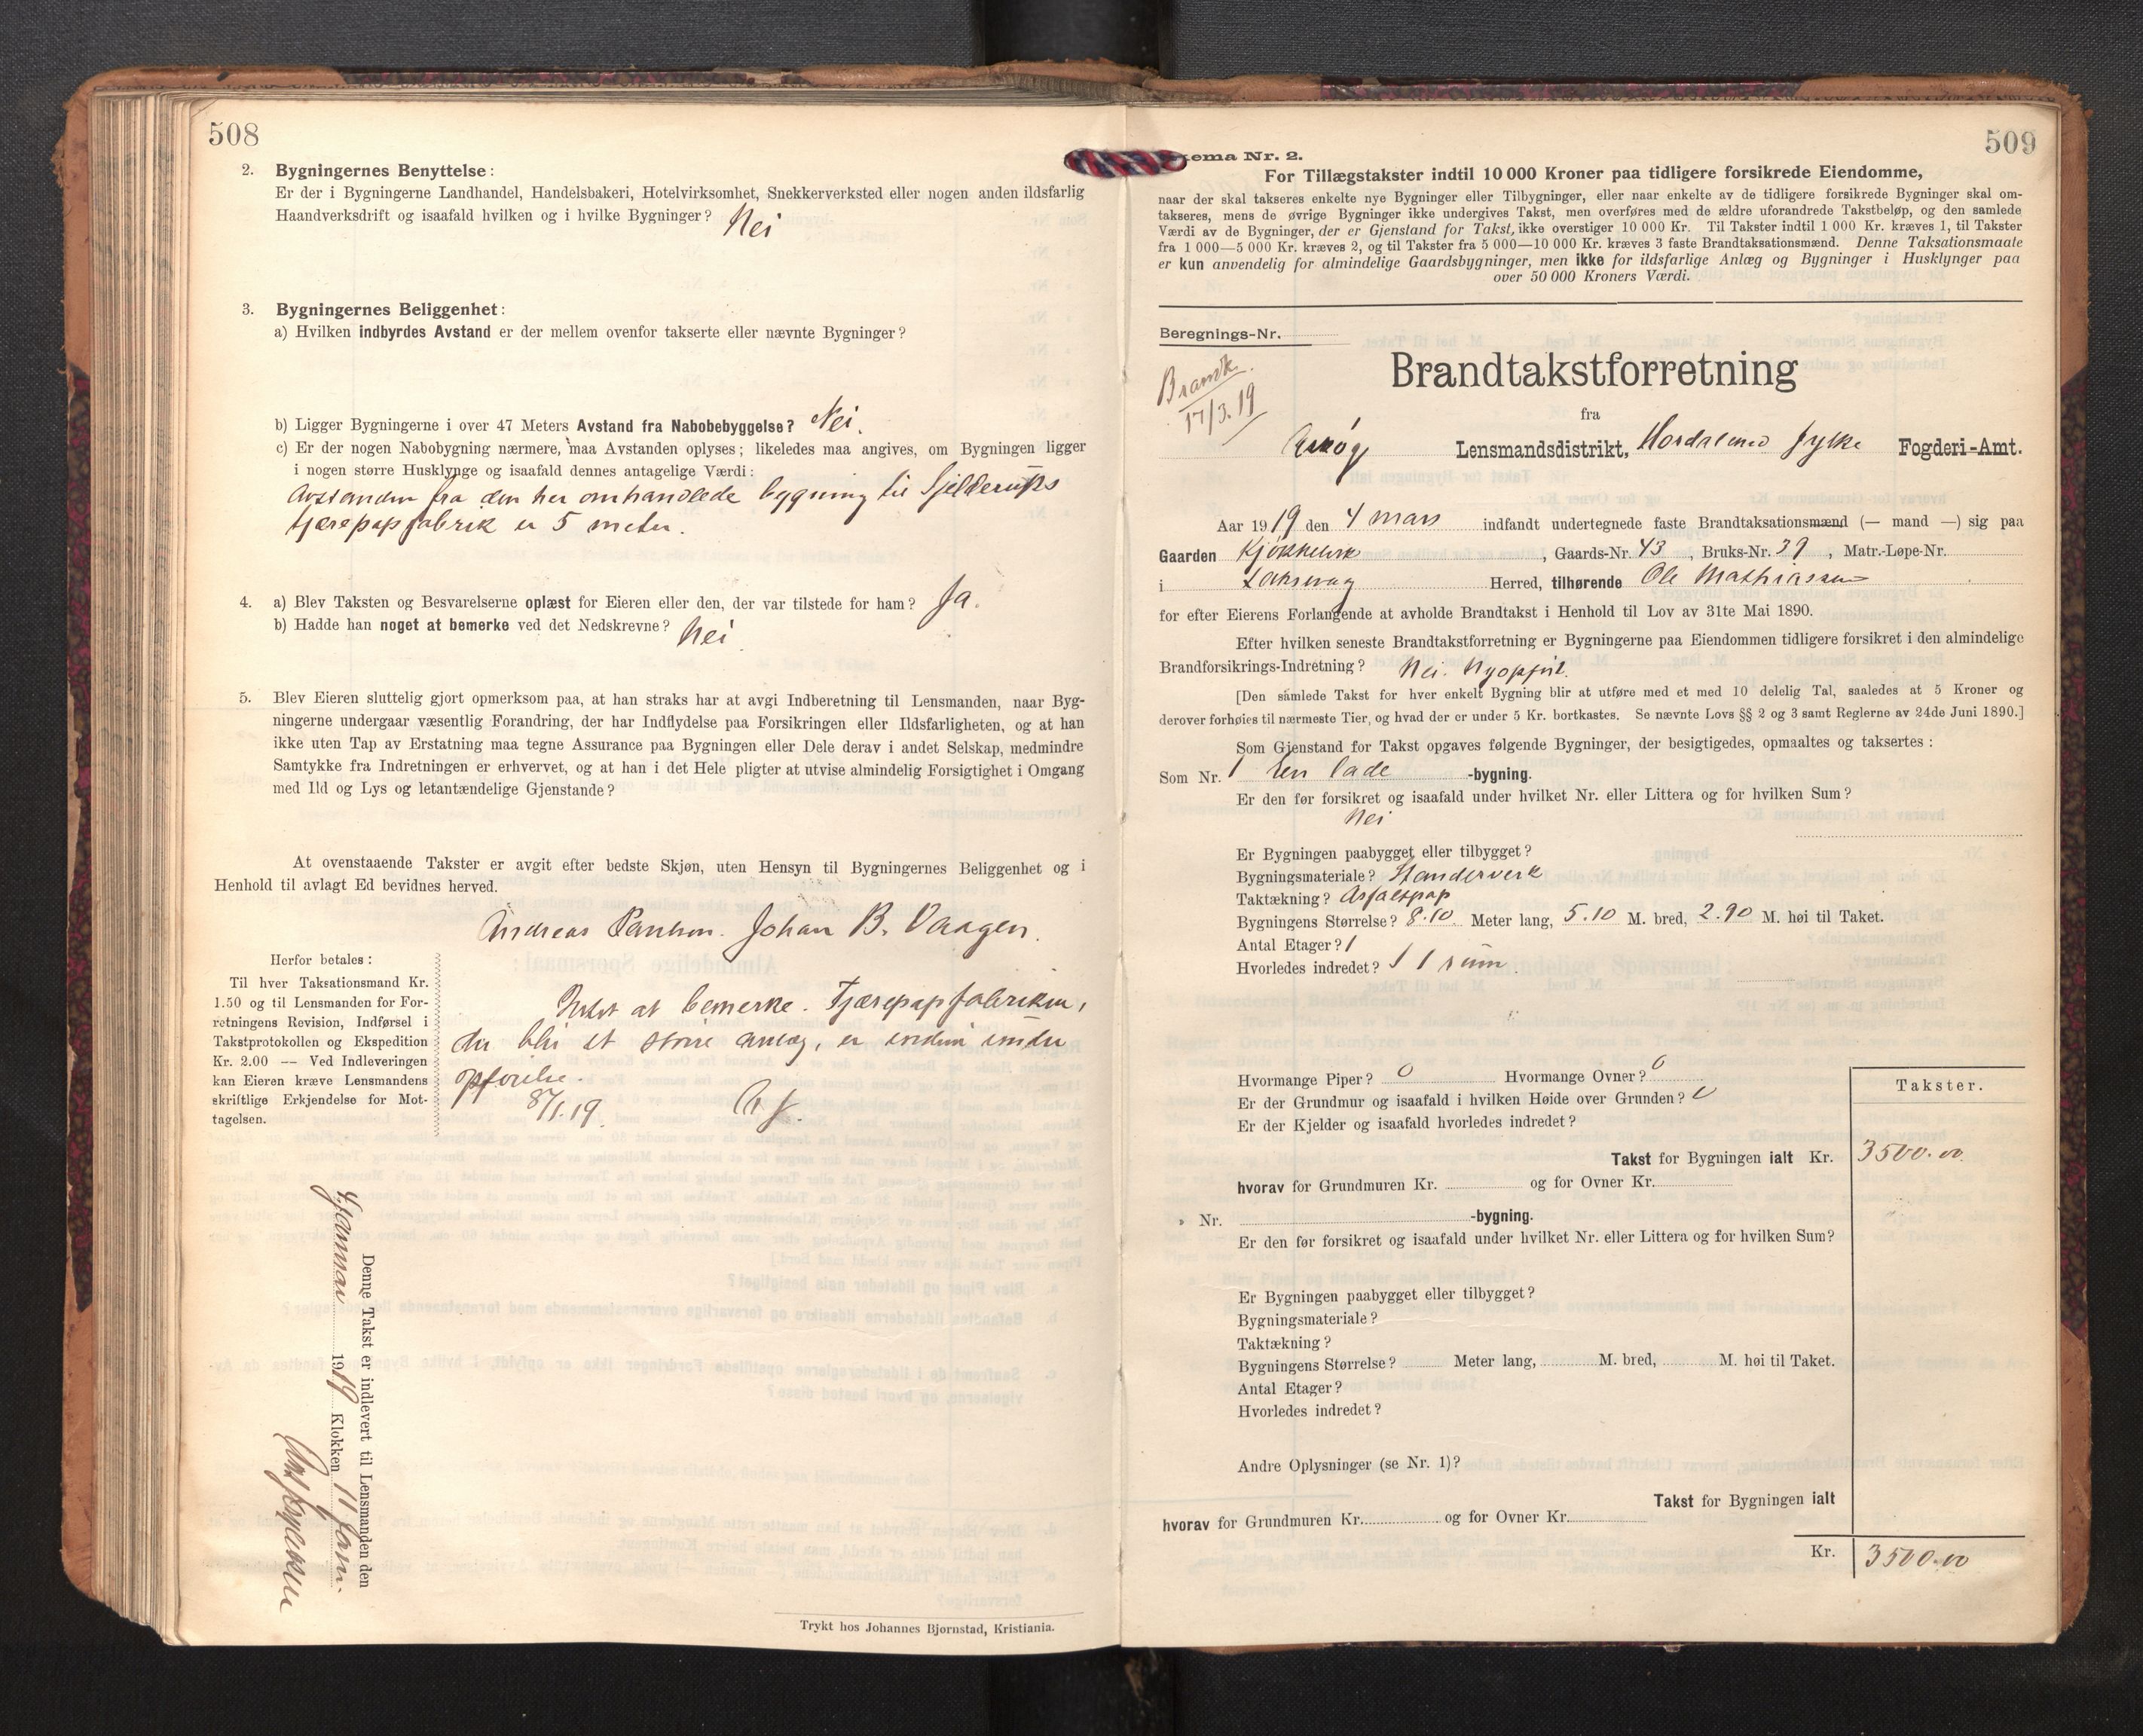 508
2. Bygningernes Benyttelse:
Er der i Bygningerne Landhandel, Handelsbakeri, Hotelvirksomhet, Snekkerverksted eller nogen anden ildsfarlig
Haandverksdrift og isaafald hvilken og i hvilke Bygninger? Nei
3. Bygningernes Beliggenhet:
a) Hvilken indbyrdes Avstand er der mellem ovenfor takserte eller nævnte Bygninger?
b) Ligger Bygningerne i over 47 Meters Avstand fra Nabobebyggelse? Nei.
c) Er der nogen Nabobygning nærmere, maa Avstanden oplyses; likeledes maa angives, om Bygningen ligger
i nogen større Husklynge og isaafald dennes antagelige Værdi:
Avstanden fra den her omhandlede bygning til Sjelderups
tjærepapfabrik er 5 meter.
4. a) Blev Taksten og Besvarelserne oplæst for Eieren eller den, der var tilstede for ham? Ja.
b) Hadde han noget at bemerke ved det Nedskrevne? Nei.
5. Blev Eieren sluttelig gjort opmerksom paa, at han straks har at avgi Indberetning til Lensmanden, naar Byg-
ningerne undergaar væsentlig Forandring, der har Indflydelse paa Forsikringen eller Ildsfarligheten, og at han
ikke uten Tap av Erstatning maa tegne Assurance paa Bygningen eller Dele derav i andet Selskap, medmindre
Samtykke fra Indretningen er erhvervet, og at han i det Hele pligter at utvise almindelig Forsigtighet i Omgang
med Ild og Lys og letantændelige Gjenstande?
At ovenstaaende Takster er avgit efter bedste Skjøn, uten Hensyn til Bygningernes Beliggenhet og i
Henhold til avlagt Ed bevidnes herved.
Andreas Johan B. Vaagen.
Herfor betales:
Til hver Taksationsmand Kr.
1.50 og til Lensmanden for For-
retningens Revision, Indførsel i
Takstprotokollen og Ekspedition
Kr. 2.00 — Ved Indleveringen
kan Eieren kræve Lensmandens
skriftlige Erkjendelse for Mot-
tagelsen.
Intet at bemerke. Tjærepapfabriken,
der blir et større anlæg, er endnu under
opførelse.
8/1.19.
Denne Takst er indlevert til Lensmanden den
4 Januar 1919 Klokken 11 form.
Trykt hos Johannes Bjørnstad, Kristiania.
509
ema Nr. 2.
For Tillægstakster indtil 10 000 Kroner paa tidligere forsikrede Eiendomme,
naar der skal takseres enkelte nye Bygninger eller Tilbygninger, eller naar enkelte av de tidligere forsikrede Bygninger skal om-
takseres, mens de øvrige Bygninger ikke undergives Takst, men overføres med de ældre uforandrede Takstbeløp, og den samlede
Værdi av de Bygninger, der er Gjenstand for Takst, ikke overstiger 10 000 Kr. Til Takster indtil 1 000 Kr. kræves 1, til Takster
fra 1 000—5 000 Kr. kræves 2, og til Takster fra 5 000—10 000 Kr. kræves 3 faste Brandtaksationsmænd. Denne Taksationsmaate
er kun anvendelig for almindelige Gaardsbygninger, men ikke for ildsfarlige Anlæg og Bygninger i Husklynger paa
over 50 000 Kroners Værdi.
Beregnings-Nr.
Brandk.
17/3.19
Brandtakstforretning
fra
Askøy Lensmandsdistrikt, Hordaland fylke Fogderi-Amt.
Aar 1919 den 4 mars indfandt undertegnede faste Brandtaksationsmænd (— mand —) sig paa
Gaarden Kjøkkelvik, Gaards-Nr. 43, Bruks-Nr. 39, Matr.-Løpe-Nr.
i Laksevaag Herred, tilhørende Ole Mathiassen
for efter Eierens Forlangende at avholde Brandtakst i Henhold til Lov av 31te Mai 1890.
Efter hvilken seneste Brandtakstforretning er Bygningerne paa Eiendommen tidligere forsikret i den almindelige
Brandforsikrings-Indretning? Nei. Nyopført.
[Den samlede Takst for hver enkelt Bygning blir at utføre med et med 10 delelig Tal, saaledes at 5 Kroner og
derover forhøies til nærmeste Tier, og hvad der er under 5 Kr. bortkastes. Se nævnte Lovs §§ 2 og 3 samt Reglerne av 24de Juni 1890.]
Som Gjenstand for Takst opgaves følgende Bygninger, der besigtigedes, opmaaltes og taksertes:
Som Nr. 1 En lade -bygning.
Er den før forsikret og isaafald under hvilket Nr. eller Littera og for hvilken Sum?
Nei
Er Bygningen paabygget eller tilbygget?
Bygningsmateriale? Standerverk
Taktækning? Asfaltpap
Bygningens Størrelse? 8.10 Meter lang, 5.10 M. bred, 2.90 M. høi til Taket.
Antal Etager? 1
Hvorledes indredet? I 1 rum.
Hvormange Piper? 0 Hvormange Ovner? 0
Er der Grundmur og isaafald i hvilken Høide over Grunden?
Er der Kjelder og isaafald hvorledes indredet?
Takster.
Takst for Bygningen ialt Kr. 3500.00
hvorav for Grundmuren Kr. og for Ovner Kr.
» Nr. -bygning.
Er den før forsikret og isaafald under hvilket Nr. eller Littera og for hvilken Sum?
Er Bygningen paabygget eller tilbygget?
Bygningsmateriale?
Taktækning?
Bygningens Størrelse? Meter lang, M. bred, M. høi til Taket.
Antal Etager?
Hvorledes indredet?
Andre Oplysninger (se Nr. 1)?
Takst for Bygningen ialt
hvorav for Grundmuren Kr. og for Ovner Kr.
Kr. 3500.00